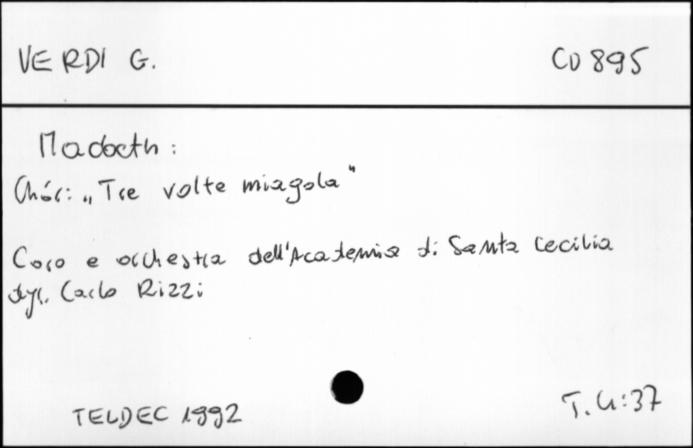 VERDI G.
CD 895
Macbeth:
Chór: „Tre volte miagola"
Coro e orchestra dell'Academia di Santa Cecilia
dyr. Carlo Rizzi
TELDEC 1992
T. 4:37